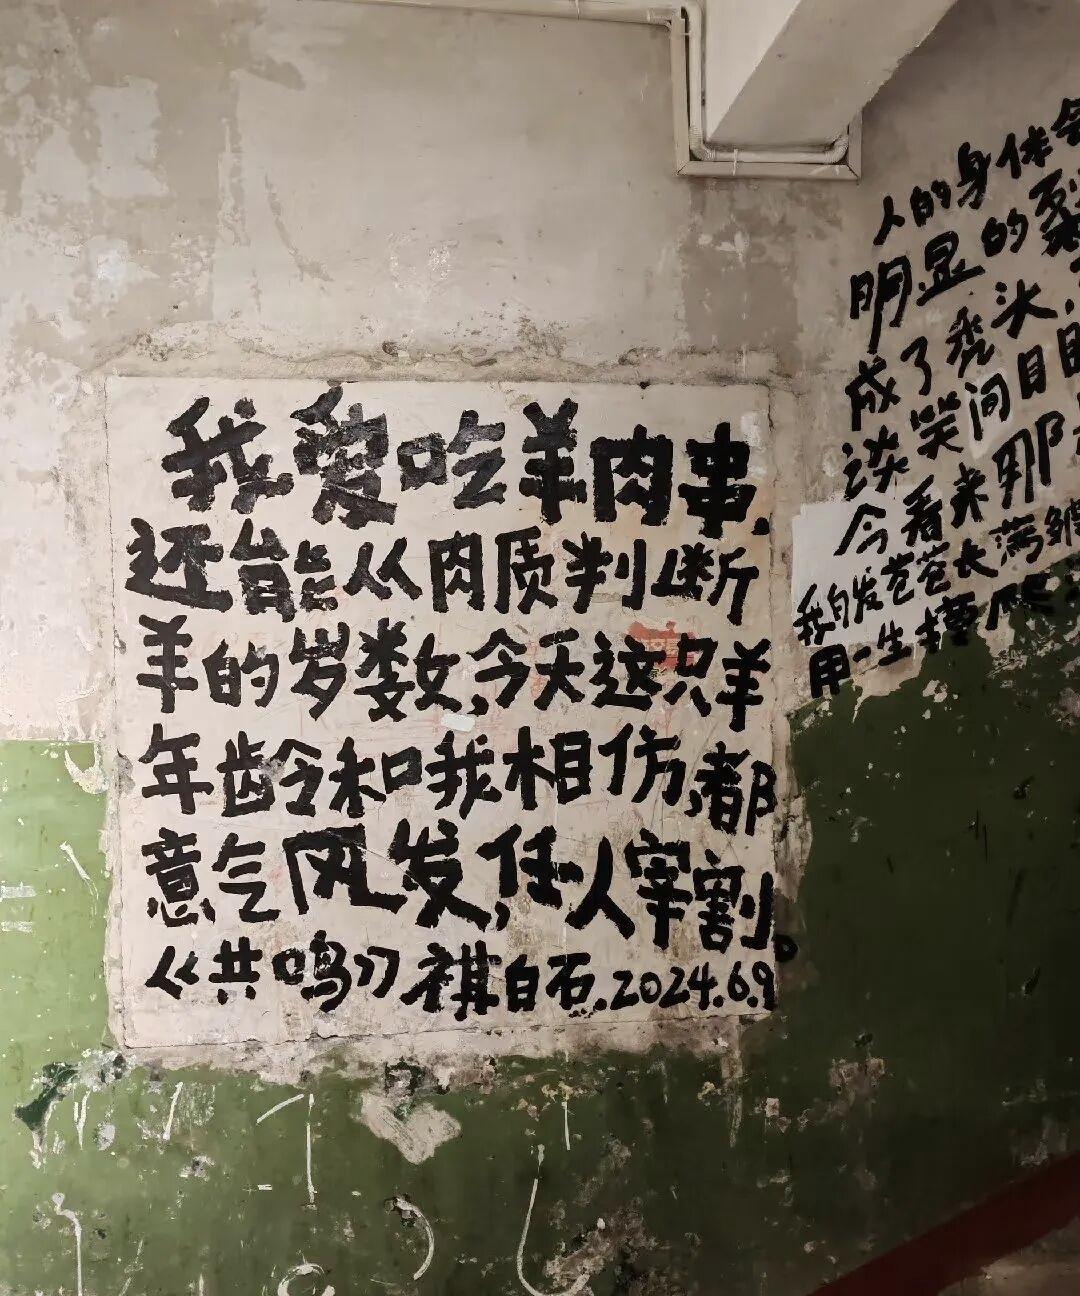 我爱吃羊肉串，
还能从肉质判断
羊的岁数，今天这只羊
年龄和我相仿，都
意气风发，任人宰割。
《共鸣》祺白石.2024.6.9
人的身体会
明显的裂
成了秃头，
谈笑间目
今看来那
我白发苍苍长满皱
用一生